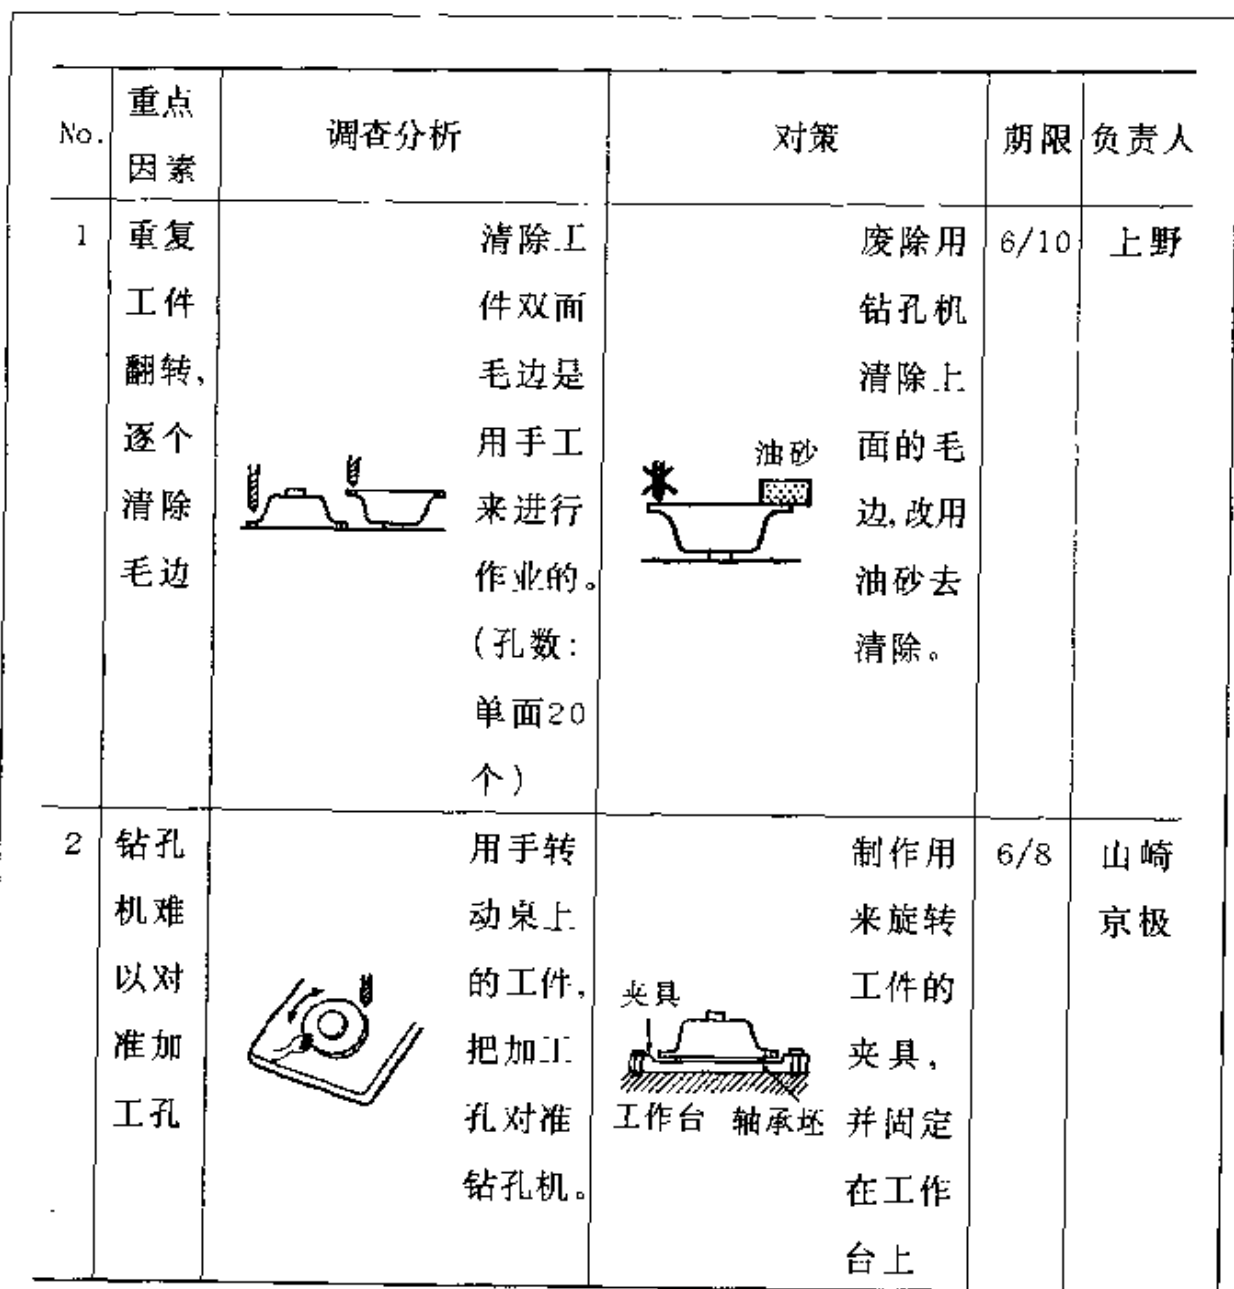 No.
重点
因素
调查分析
对策
期限
负责人
1
重复
工件
翻转,
逐个
清除
毛边
清除工
件双面
毛边是
用手工
来进行
作业的。
(孔数:
单面20
个)
油砂
废除用
钻孔机
清除上
面的毛
边,改用
油砂去
清除。
6/10
上野
2
钻孔
机难
以对
准加
工孔
用手转
动桌上
的工件,
把加工
孔对准
钻孔机。
夹具
工作台
轴承坯
制作用
来旋转
工件的
夹具,
并固定
在工作
台上
6/8
山崎
京极